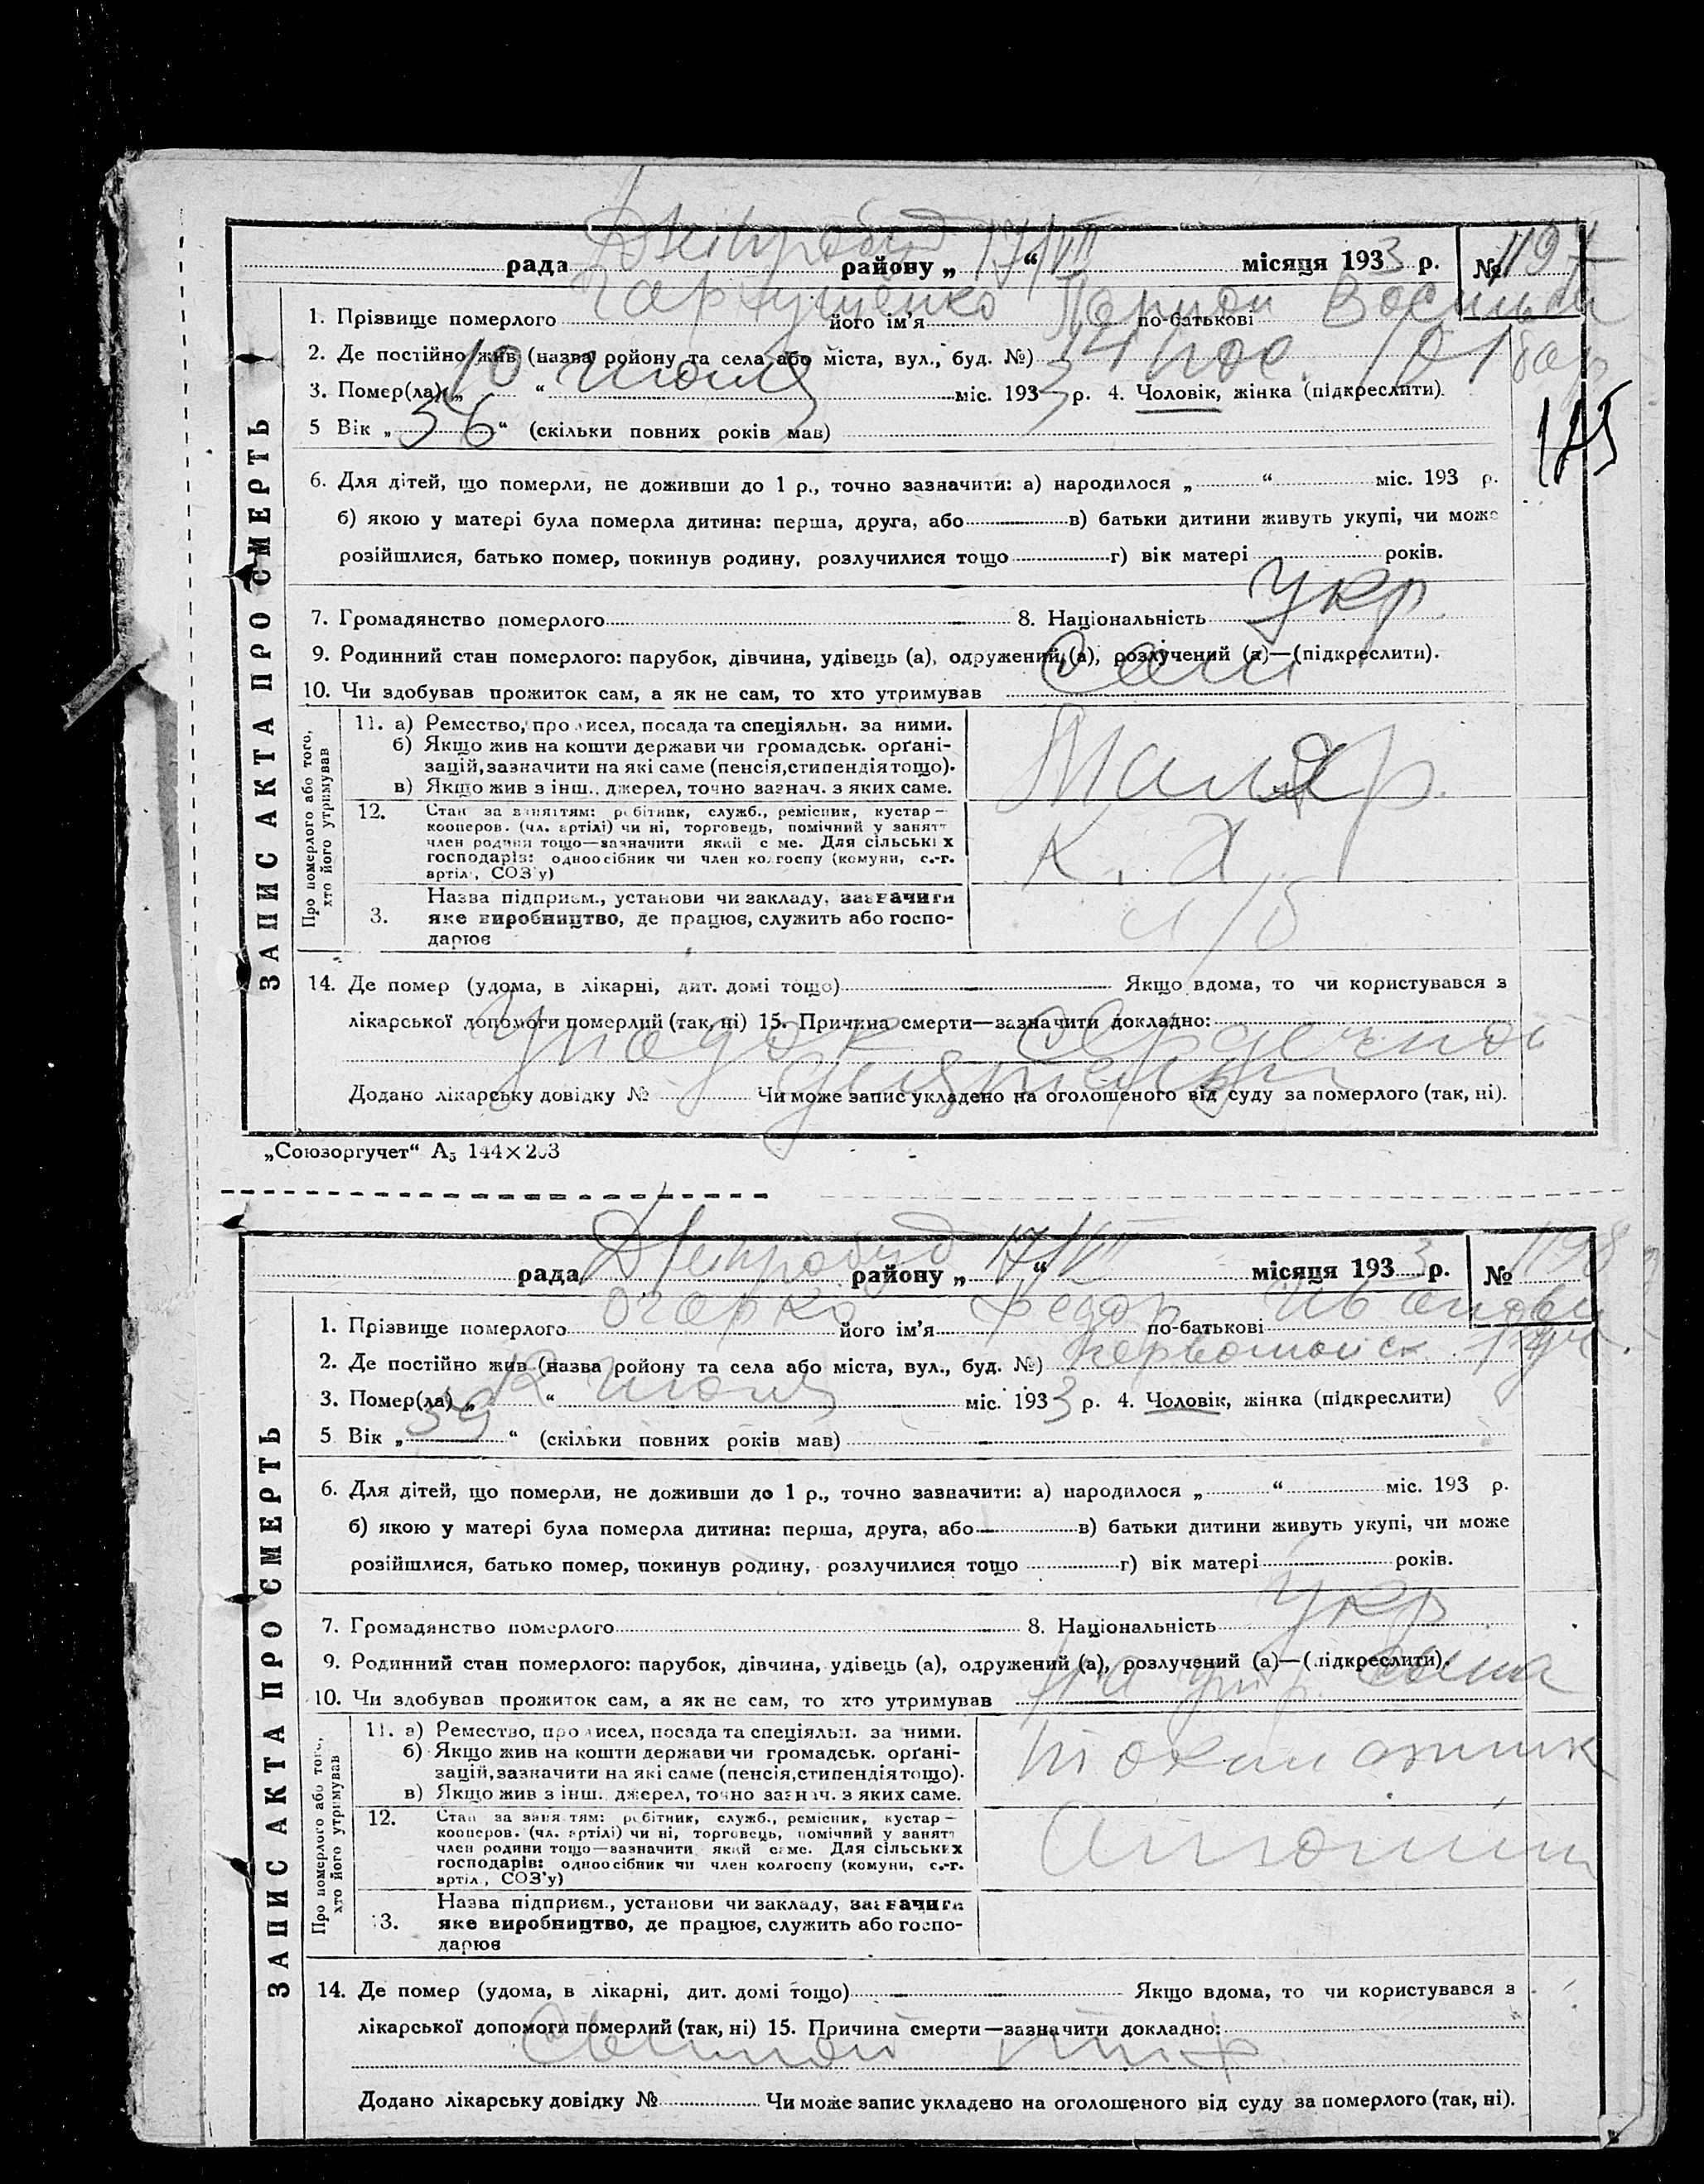 Дніпробуд 17/VII
рада районy „ “ місяця 1933 р. № 1197
ЗАПИС АКТА ПРО СМЕРТЬ
1. Прізвище померлого його ім’я по-батькові
2. Де постійно жив (назва ройону та села або міста, вул., буд. №) 14 пос. 101 бар
3. Помер(ла) „ 10 “ июля міс. 1933 р. 4. Чоловік, жінка (підкреслити).
5 Вік „ 36 “ (скільки повних років мав)
145
6. Для дітей, що померли, не доживши до 1 р., точно зазначити: а) народилося „ “ міс. 193 р.
б) якою у матері була померла дитина: перша, друга, або в) батьки дитини живуть укупі, чи може
розійшлися, батько помер, покинув родину, розлучилися тощо г) вік матері років.
7. Громадянство померлого 8. Національність Укр.
9. Родинний стан померлого: парубок, дівчина, удівець (а), одружений (а), розлучений (а)—(підкреслити).
10. Чи здобував прожиток сам, а як не сам, то хто утримував Сам
Про померлого або того, хто його утримував
11. а) Ремество, промисел, посада та спеціяльн. за ними.
б) Якщо жив на кошти держави чи громадськ. орґані-
зацій, зазначити на які саме (пенсія, стипендія тощо).
в) Якщо жив з інш. джерел, точно зазнач. з яких саме.
Маляр
12. Стан за заняттям: робітник, служб., ремісник, кустар—
кооперов. (чл. артілі) чи ні, торговець, помічний у занятт
член родини тощо—зазначити який саме. Для сільських
господарів: одноосібник чи член колгоспу (комуни, с.-г.
артіл., СОЗ’у)
К. Х.
3. Назва підприєм., установи чи закладу, зазначити
яке виробництво, де працює, служить або госпо-
дарює
ч/б
14. Де помер (удома, в лікарні, дит. домі тощо) Якщо вдома, то чи користувався з
лікарської допомоги померлий (так, ні) 15. Причина смерти—зазначити докладно:
Упадок сердечной
деятельн
Додано лікарську довідку № Чи може запис укладено на оголошеного від суду за померлого (так, ні).
„Союзоргучет“ А5 144×203
Дніпробуд 17/VII
рада району „ “ місяця 1933 р. № 1198
ЗАПИС АКТА ПРО СМЕРТЬ
1. Прізвище померлого Очарко його ім’я Федор по-батькові Иванови
2. Де постійно жив (назва ройону та села або міста, вул., буд. №) Первомайск. 1 уч.
3. Помер(ла) „ 12 “ июля міс. 1933 р. 4. Чоловік, жінка (підкреслити)
5 Вік „ 59 “ (скільки повних років мав)
6. Для дітей, що померли, не доживши до 1 р., точно зазначити: а) народилося „ “ міс. 193 р.
б) якою у матері була померла дитина: перша, друга, або в) батьки дитини живуть укупі, чи може
розійшлися, батько помер, покинув родину, розлучилися тощо г) вік матері років.
7. Громадянство померлого 8. Національність Укр
9. Родинний стан померлого: парубок, дівчина, удівець (а), одружений (а), розлучений (а)—(підкреслити).
10. Чи здобував прожиток сам, а як не сам, то хто утримував На утр. сына
Про померлого або того, хто його утримував
11. а) Ремество, промисел, посада та спеціяльн. за ними.
б) Якщо жив на кошти держави чи громадськ. орґані-
зацій, зазначити на які саме (пенсія, стипендія тощо).
в) Якщо жив з інш. джерел, точно зазнач. з яких саме.
12. Стан за заняттям: робітник, служб., ремісник, кустар—
кооперов. (чл. артілі) чи ні, торговець, помічний у занятт
член родини тощо—зазначити який саме. Для сільських
господарів: одноосібник чи член колгоспу (комуни, с.-г.
артіл., СОЗ’у)
13. Назва підприєм., установи чи закладу, зазначити
яке виробництво, де працює, служить або госпо-
дарює
14. Де помер (удома, в лікарні, дит. домі тощо) Якщо вдома, то чи користувався з
лікарської допомоги померлий (так, ні) 15. Причина смерти—зазначити докладно:
Сыпной тиф
Додано лікарську довідку № Чи може запис укладено на оголошеного від суду за померлого (так, ні).